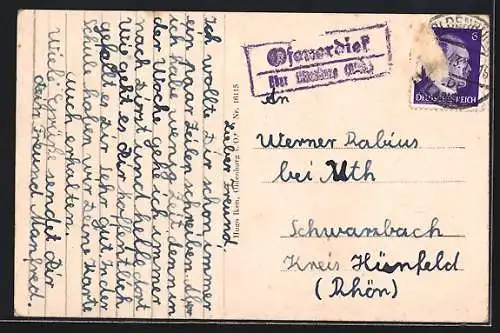 Lieber Freund,
Ich wollte Dir schon immer
ein paar Zeilen schreiben. Aber
ich habe wenig Zeit denn in
der Woche gehe ich immer
nach und helfe dort
Wie geht es Dir hoffentlich
gefällt es Dir sehr gut. In der
Schule haben wir Deine Karte
auch erhalten.
Viele Grüße sendet Dir
dein Freund Manfred.
Hugo Oldenburg i. O. Nr. 16115
Ofenerdiek
über Oldenburg (Oldb.)
OLDENBURG
6
DEUTSCHES REICH
An
Werner Rabius
bei Uth
Schwarzbach
Kreis Hünfeld
(Rhön)